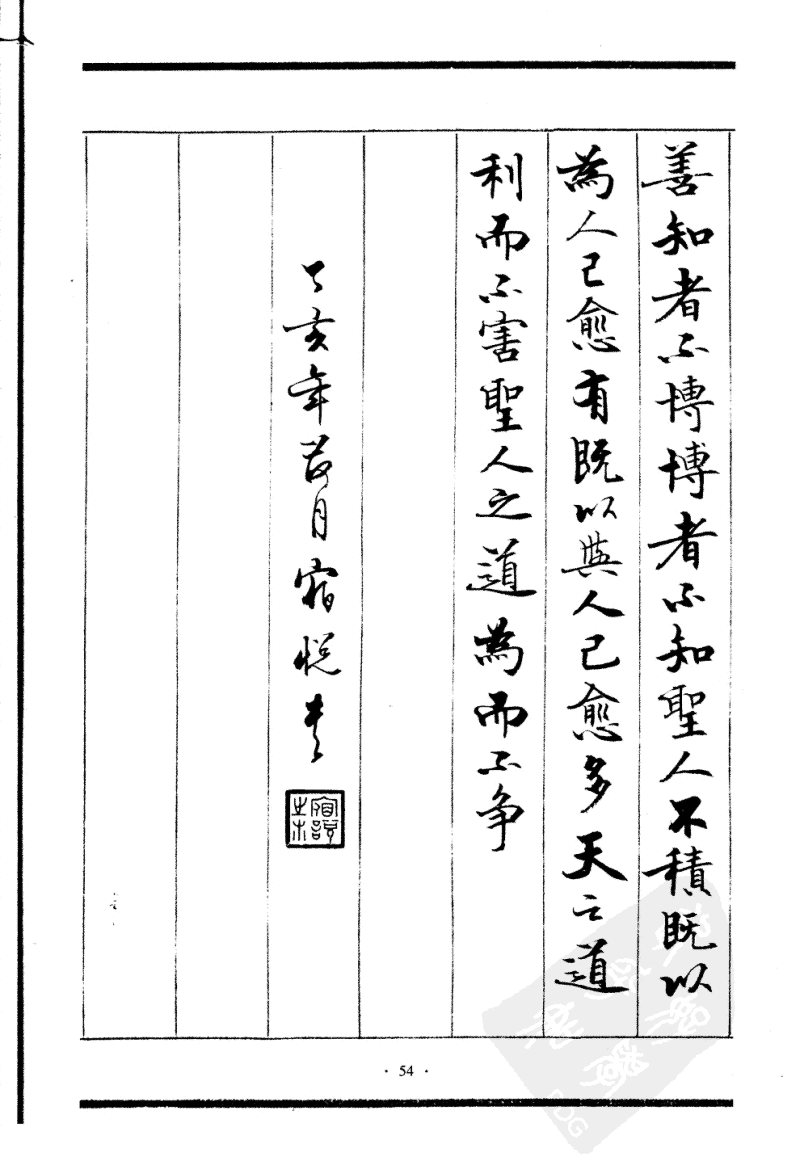 善知者不博博者不知聖人不積既以
為人己愈有既以與人己愈多天之道
利而不害聖人之道為而不争
丁亥年荷月宿悦書
· 54 ·